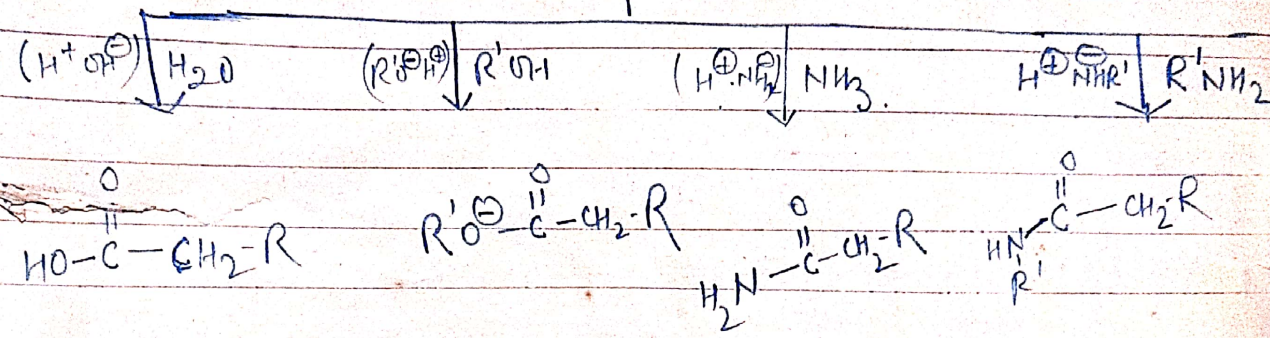 (H⁺ OH⊖) H₂O (R'O⊖H⊕) R'OH (H⊕.NH₂⊖) NH₃. H⊕ ⊖NHR' R'NH₂
O O O O
HO–C–CH₂–R R'O⊖–C–CH₂–R H₂N–C–CH₂–R HN–C–CH₂–R
R'